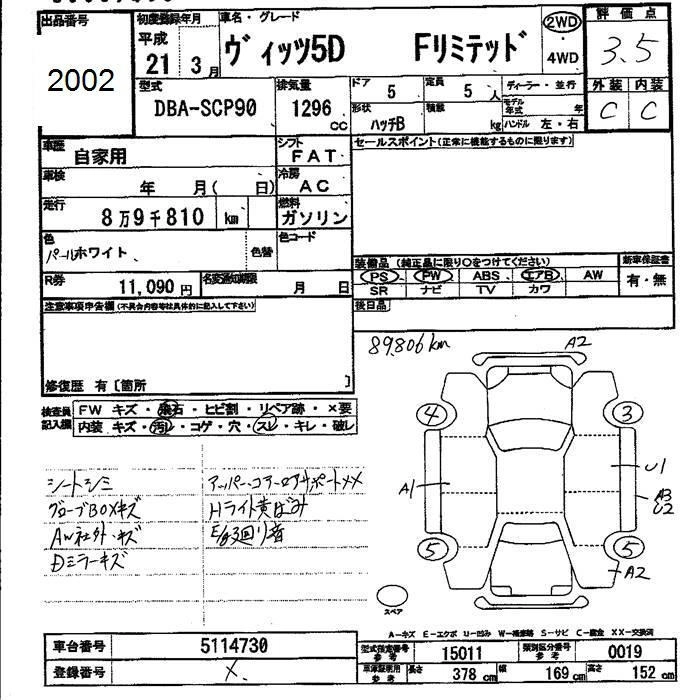 出品番号
2002
初度登録年月
平成
21 3月
車名・グレード
ヴィッツ5D Fリミテッド
2WD
4WD
評価点
3.5
外装 内装
C C
型式
DBA-SCP90
排気量
1296
cc
ドア
5
定員
5 人
ディーラー・並行
モデル年式 年
形状
ハッチB
積載
kg
ハンドル 左・右
車歴
自家用
シフト
FAT
セールスポイント(正常に機能するものに限ります)
車検
年 月( 日)
冷房
AC
走行
8万9千810 km
燃料
ガソリン
色
パールホワイト
色替
色コード
装備品 (純正品に限り○をつけてください)
新車保証書
PS PW ABS エアB AW
有・無
SR ナビ TV カワ
R券
11,090円
名変通知期限
月 日
後日品
注意事項申告欄(不具合内容等は具体的に記入して下さい)
修復歴 有〔箇所 〕
検査員記入欄
FW キズ・飛石・ヒビ割・リペア跡・×要
内装 キズ・汚れ・コゲ・穴・スレ・キレ・破レ
89,806km
A2
4
3
A1
U1
A3
U2
5
5
A2
スペア
シートシミ
グローブBOXキズ
AW社外・キズ
Dミラーキズ
アッパー・コアーロアサポートXX
Hライト黄ばみ
E/g廻り音
A-キズ E-エクボ U-凹み W-補修跡 S-サビ C-腐食 XX-交換済
車台番号
5114730
登録番号
X
型式指定番号
参考
15011
類別区分番号
参考
0019
車庫証明用
参考
長さ
378 cm
幅
169 cm
高さ
152 cm